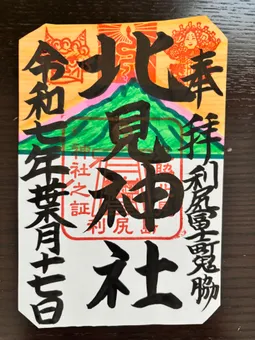 奉拝
利尻富士町鬼脇
北見神社
神社之証
利尻島
令和七年葉月十七日